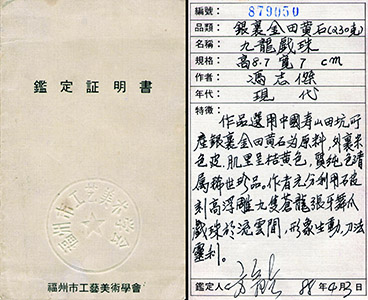 鑑定証明書
福州市工艺美术学会
福州市工藝美術學會
編號： 879050
品類： 銀裏金田黄石(230克)
名稱： 九龍戲珠
規格： 高8.7 寬7 cm
作者： 馮志傑
年代： 現代
特徵：
作品選用中國寿山田坑所
産銀裏金田黄石为原料，外裹米
色皮，肌里呈桔黄色，質純色清
属稀世珍品。作者充分利用石皮
刻高浮雕九隻蒼龍張牙舞爪
戲珠於流雲間，形象生動，刀法
犀利。
鑑定人 88年4月3日